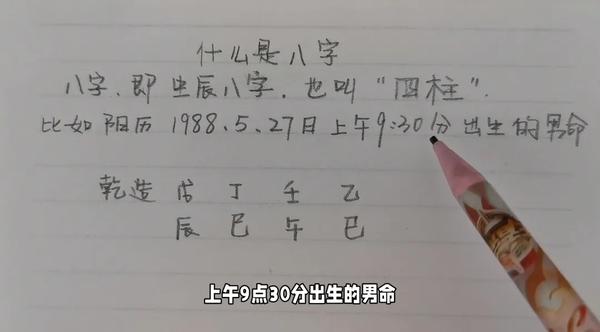 什么是八字
八字，即生辰八字，也叫“四柱”．
比如阳历 1988．5．27日上午9:30分出生的男命
乾造 戊 丁 壬 乙
辰 巳 午 巳
上午9点30分出生的男命